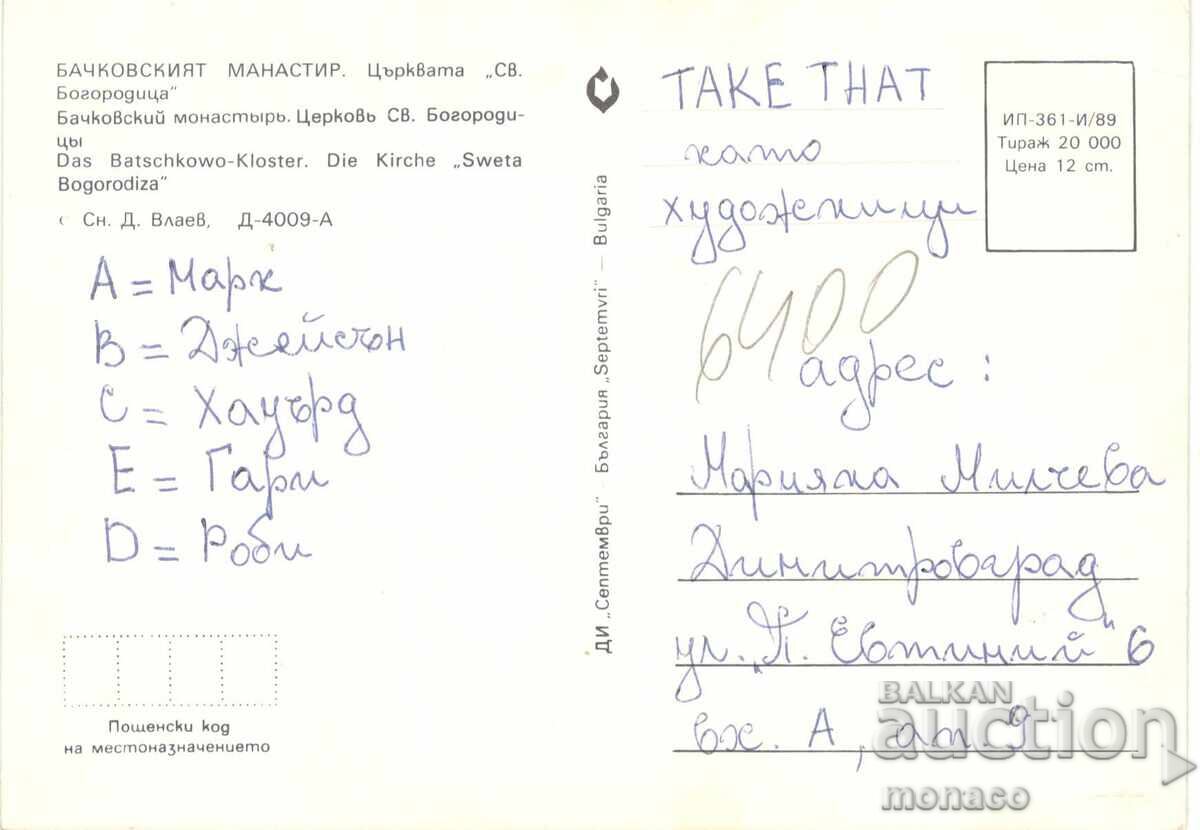 БАЧКОВСКИЯТ МАНАСТИР. Църквата „СВ.
Богородица"
Бачковский монастырь. Церковь СВ. Богороди-
цы
Das Batschkowo-Kloster. Die Kirche „Sweta
Bogorodiza"
Сн. Д. Влаев, Д-4009-А
А = Марк
В = Джейсън
С = Хауърд
Е = Гари
D = Роби
Пощенски код
на местоназначението
ДИ „Септември" - България „Septemvri" — Bulgaria
TAKE THAT
като
художници
6400
адрес:
Марияна Милчева
Димитровград
ул. „П. Евтимий" 6
вх. А, ап. 9
ИП-361-И/89
Тираж 20 000
Цена 12 ст.
BALKAN
auction
monaco